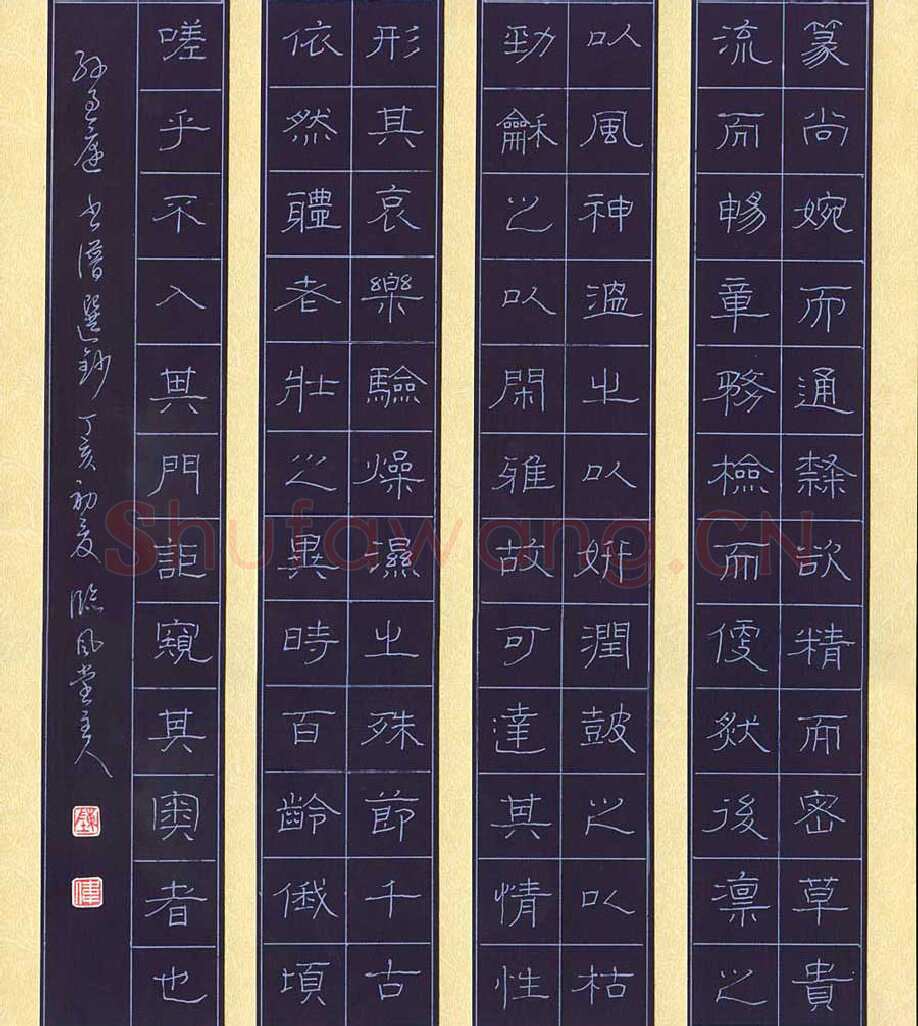 篆尚婉而通隸欲精而密草貴
流而暢章務檢而便然後凜之
以風神溫之以妍潤鼓之以枯
勁龢之以閑雅故可達其情性
形其哀樂驗燥濕之殊節千古
依然軆老壯之異時百齡俄頃
嗟乎不入其門詎窺其奧者也
孫過庭書譜選鈔丁亥初夏臨風堂主人
Shufawang.CN